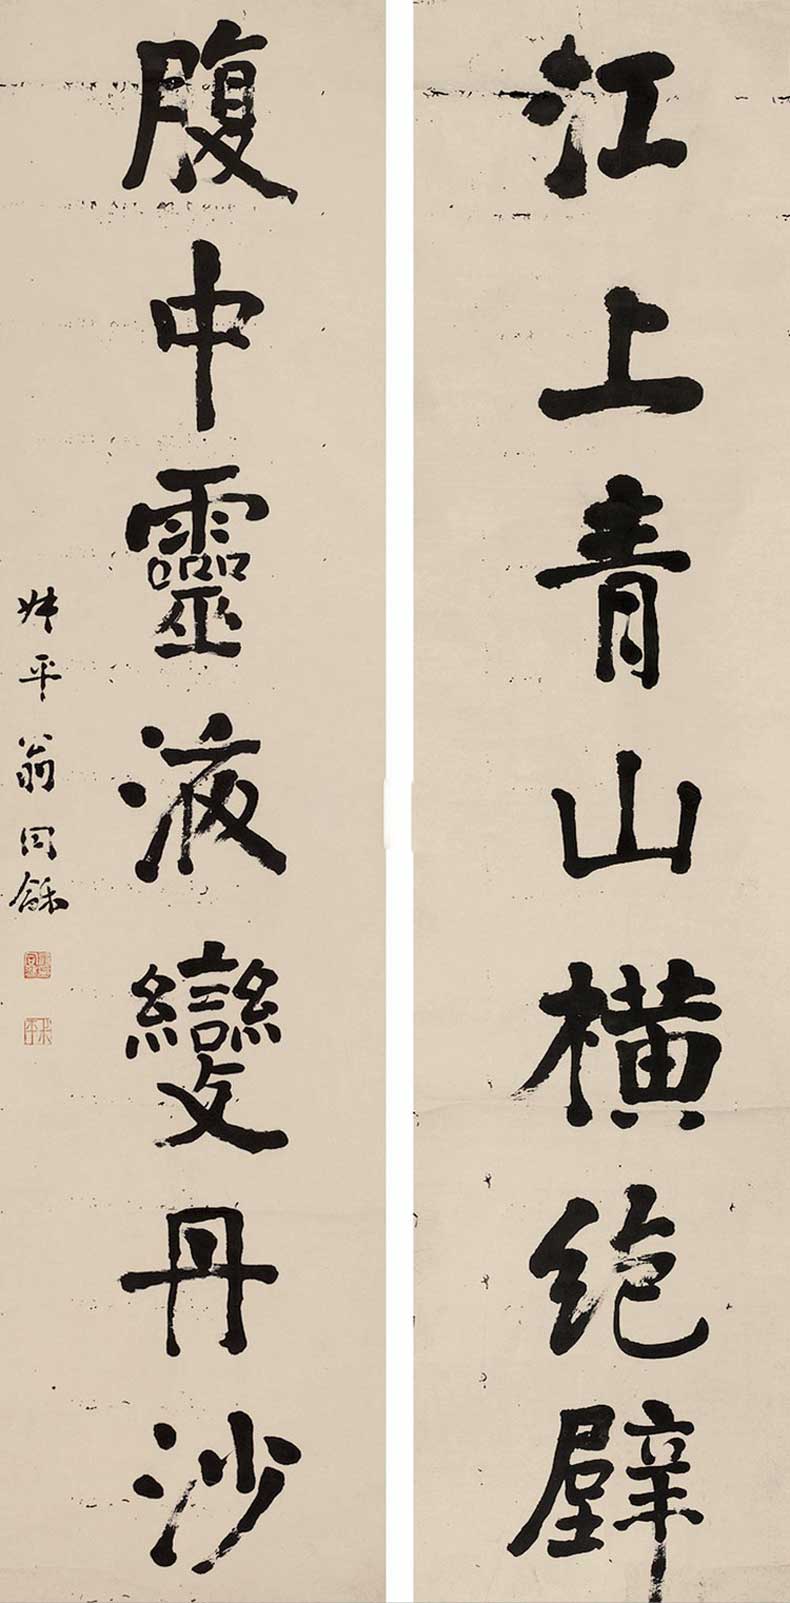 江上青山橫絶壁
腹中靈液變丹沙
叔平翁同龢